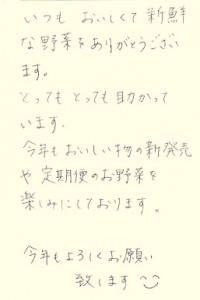 いつも おいしくて新鮮
な野菜をありがとうござい
ます。
とっても とっても助かって
います.
今年もおいしい物の新発売
や 定期便のお野菜を
楽しみにしております。
今年もよろしくお願い
致します